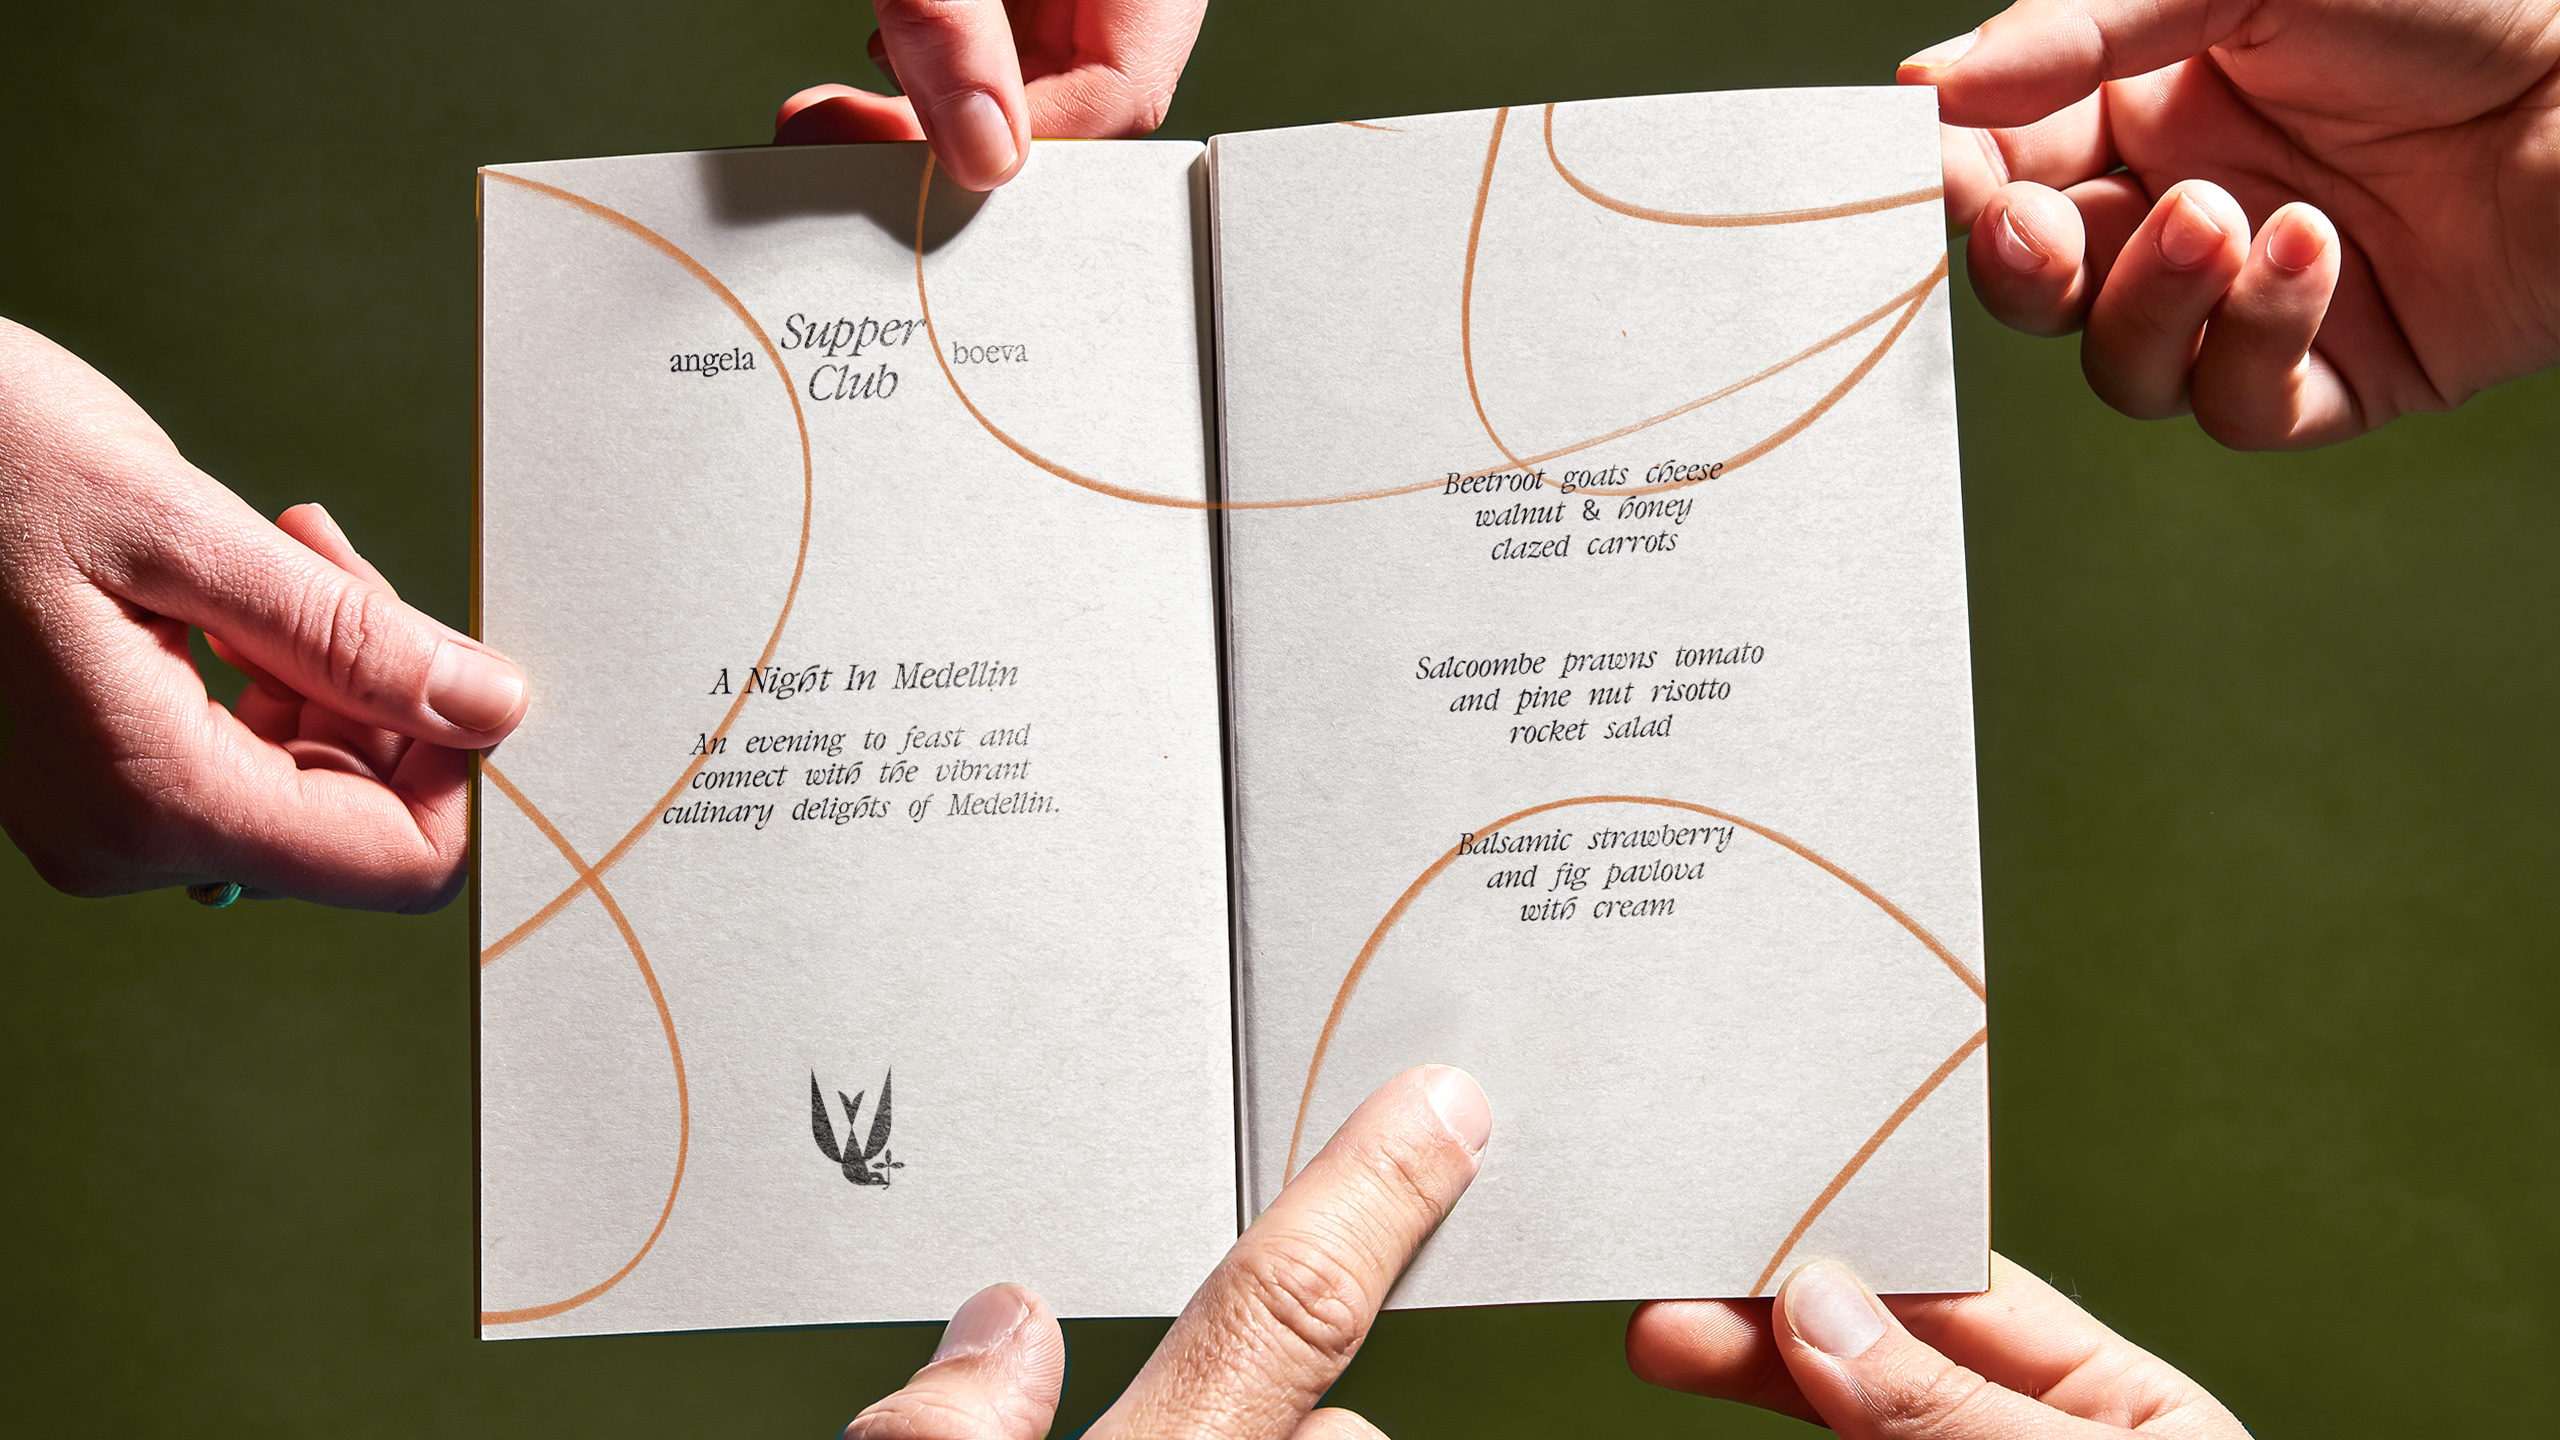 angela Supper Club boeva
A Night In Medellin
An evening to feast and
connect with the vibrant
culinary delights of Medellin.
Beetroot goats cheese
walnut & honey
clazed carrots
Salcoombe prawns tomato
and pine nut risotto
rocket salad
Balsamic strawberry
and fig pavlova
with cream